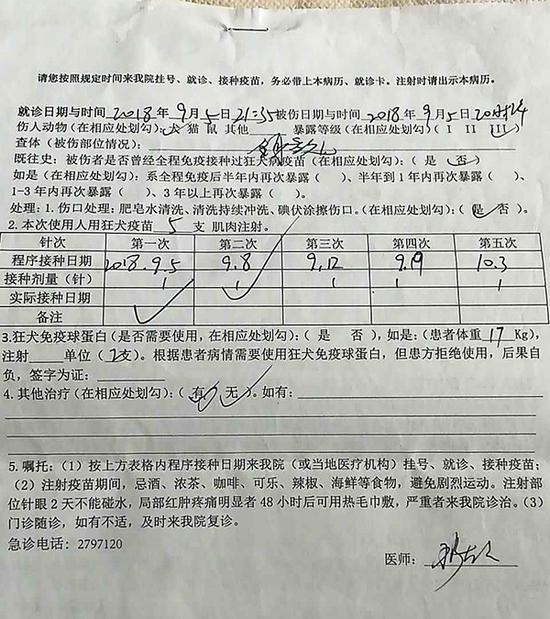 请您按照规定时间来我院挂号、就诊、接种疫苗，务必带上本病历、就诊卡。注射时请出示本病历。
就诊日期与时间2018年9月5日21:35被伤日期与时间2018年9月5日20时
伤人动物(在相应处划勾):犬 猫 鼠 其他 暴露等级(在相应处划勾)( I II III )
查体(被伤部位情况):
既往史:被伤者是否曾经全程免疫接种过狂犬病疫苗(在相应处划勾):( 是 否 )
如是(在相应处划勾):系全程免疫后半年内再次暴露( )、半年到1年内再次暴露( )、
1-3年内再次暴露( )、3年以上再次暴露( )。
处理:1.伤口处理:肥皂水清洗、清洗持续冲洗、碘伏涂擦伤口。(在相应处划勾):( 是 否 )。
2.本次使用人用狂犬疫苗 5 支 肌肉注射。
针次 第一次 第二次 第三次 第四次 第五次
程序接种日期 2018.9.5 9.8 9.12 9.19 10.3
接种剂量(针) 1 1 1 1 1
实际接种日期
备注
3.狂犬免疫球蛋白(是否需要使用,在相应处划勾):( 是 否 ),如是:(患者体重17Kg),
注射____单位(2支)。根据患者病情需要使用狂犬免疫球蛋白，但患方拒绝使用，后果自
负，签字为证:
4.其他治疗(在相应处划勾):( 有 无 )。如有:
5.嘱托:(1)按上方表格内程序接种日期来我院(或当地医疗机构)挂号、就诊、接种疫苗;
(2)注射疫苗期间，忌酒、浓茶、咖啡、可乐、辣椒、海鲜等食物，避免剧烈运动。注射部
位针眼2天不能碰水，局部红肿疼痛明显者48小时后可用热毛巾敷，严重者来我院诊治。(3)
门诊随诊，如有不适，及时来我院复诊。
急诊电话:2797120
医师: